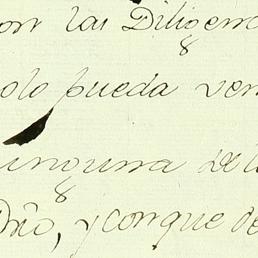 con las Diligen
8
olo pueda ven
inguna de l
8
Dño, y conque de